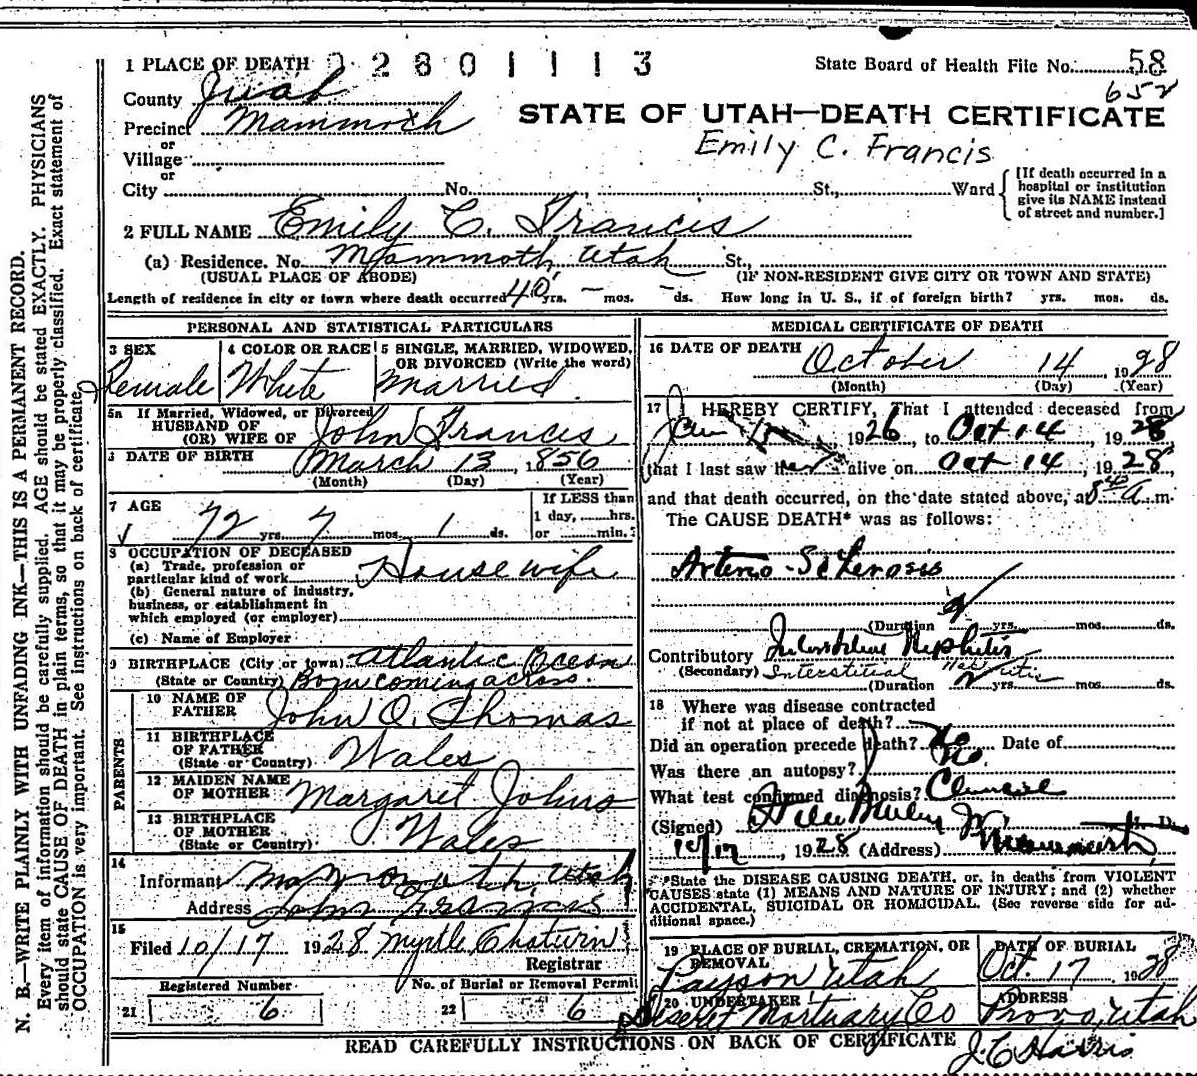 1 PLACE OF DEATH 02801113
State Board of Health File No. 58
652
County Juab
Precinct Mammoth
STATE OF UTAH—DEATH CERTIFICATE
or
Emily C. Francis
Village
or
City No. St., Ward
[If death occurred in a
hospital or institution
give its NAME instead
of street and number.]
2 FULL NAME Emily C. Francis
(a) Residence. No. Mammoth, Utah St.,
(USUAL PLACE OF ABODE) (IF NON-RESIDENT GIVE CITY OR TOWN AND STATE)
Length of residence in city or town where death occurred 40 yrs. — mos. — ds. How long in U. S., if of foreign birth? yrs. mos. ds.
PERSONAL AND STATISTICAL PARTICULARS
3 SEX
Female
4 COLOR OR RACE
White
5 SINGLE, MARRIED, WIDOWED,
OR DIVORCED (Write the word)
Married
5a If Married, Widowed, or Divorced
HUSBAND OF
(OR) WIFE OF John Francis
DATE OF BIRTH March 13, 1856
(Month) (Day) (Year)
7 AGE
72 yrs. 7 mos. 1 ds.
If LESS than
1 day, hrs.
or min.
8 OCCUPATION OF DECEASED
(a) Trade, profession or
particular kind of work Housewife
(b) General nature of industry,
business, or establishment in
which employed (or employer)
(c) Name of Employer
9 BIRTHPLACE (City or town) Atlantic Ocean
(State or Country) Born coming across.
PARENTS
10 NAME OF
FATHER John O. Thomas
11 BIRTHPLACE
OF FATHER
(State or Country) Wales
12 MAIDEN NAME
OF MOTHER Margaret Johns
13 BIRTHPLACE
OF MOTHER
(State or Country) Wales
14
Informant Mammoth, Utah
Address John Francis
15
Filed 10/17 1928 Myrtle Chatwin
Registrar
Registered Number No. of Burial or Removal Permit
21 6 22 6
MEDICAL CERTIFICATE OF DEATH
16 DATE OF DEATH October 14 1928
(Month) (Day) (Year)
17 I HEREBY CERTIFY, That I attended deceased from
Jan 1926, to Oct 14, 1928,
that I last saw her alive on Oct 14, 1928,
and that death occurred, on the date stated above, at 8 40 A m.
The CAUSE DEATH* was as follows:
Arterio-Sclerosis
(Duration yrs. mos. ds.
Contributory Interstitial Nephritis
(Secondary) Interstitial Nephritis
(Duration 2 yrs. mos. ds.
18 Where was disease contracted
if not at place of death?
Did an operation precede death? No Date of
Was there an autopsy? No.
What test confirmed diagnosis? Clinical
(Signed) M. D.
10/17, 1928 (Address) Mammoth
*State the DISEASE CAUSING DEATH, or. in deaths from VIOLENT
CAUSES state (1) MEANS AND NATURE OF INJURY; and (2) whether
ACCIDENTAL, SUICIDAL OR HOMICIDAL. (See reverse side for ad-
ditional space.)
19 PLACE OF BURIAL, CREMATION, OR
REMOVAL
Payson Utah
DATE OF BURIAL
Oct. 17 1928
20 UNDERTAKER
Deseret Mortuary Co
ADDRESS
Provo, Utah
READ CAREFULLY INSTRUCTIONS ON BACK OF CERTIFICATE
J C Harris
N. B.—WRITE PLAINLY WITH UNFADING INK—THIS IS A PERMANENT RECORD.
Every item of information should be carefully supplied. AGE should be stated EXACTLY. PHYSICIANS
should state CAUSE OF DEATH in plain terms, so that it may be properly classified. Exact statement of
OCCUPATION is very important. See instructions on back of certificate.